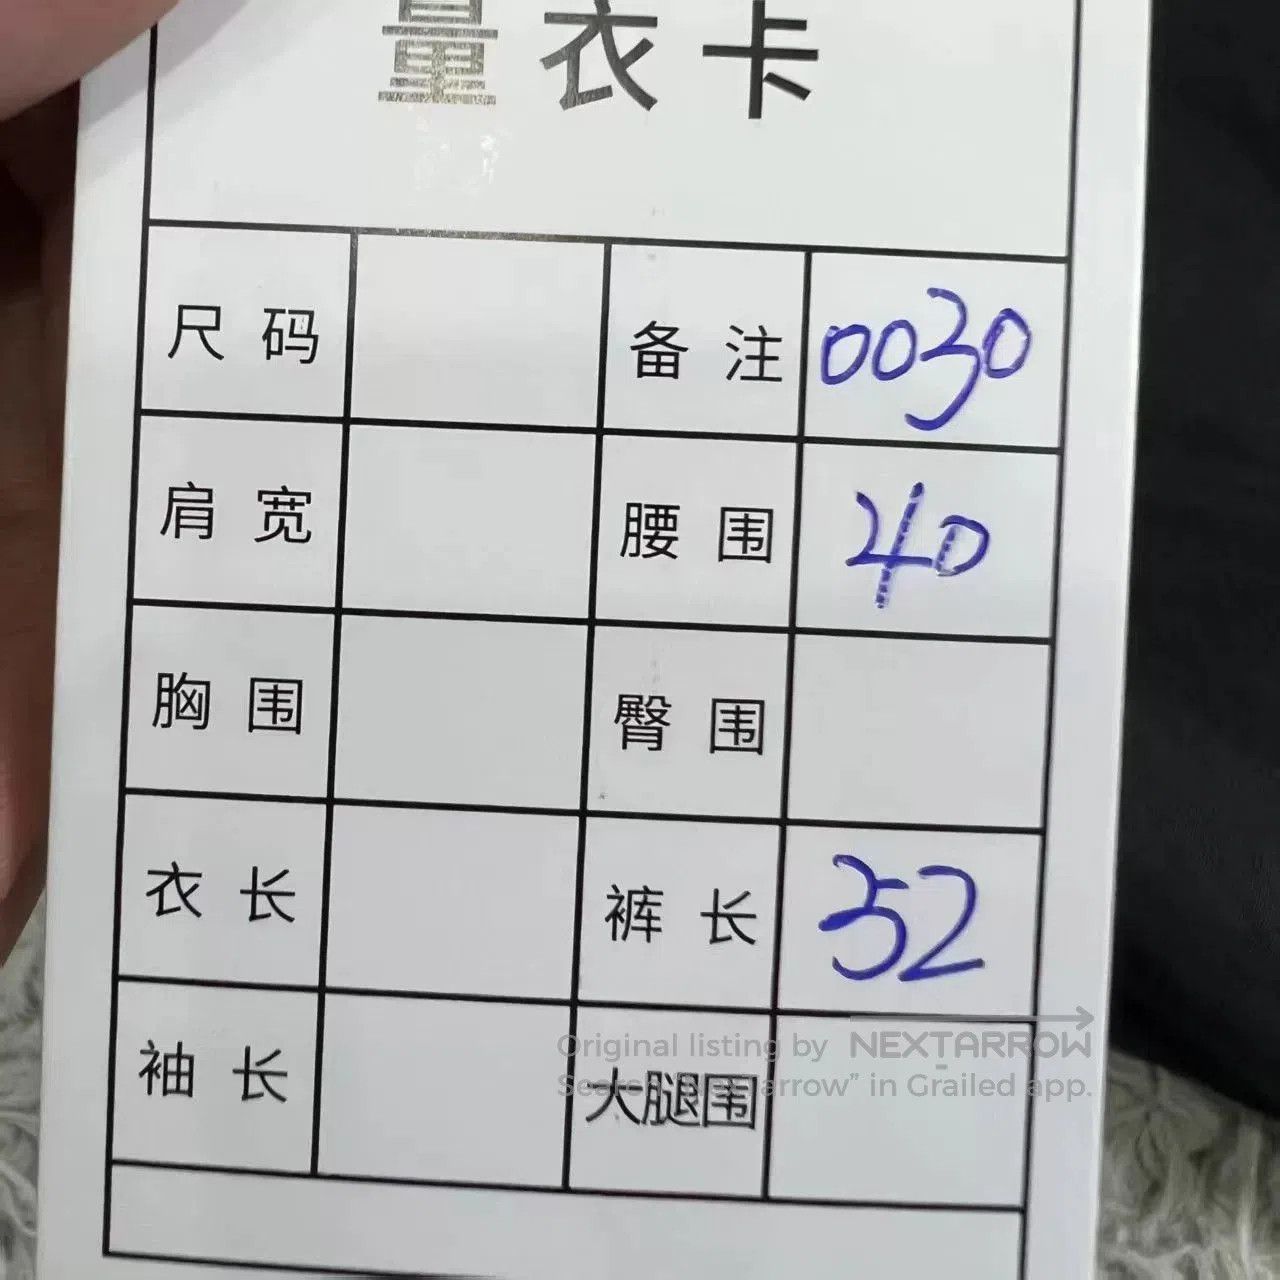 量衣卡
尺码 备注 0030
肩宽 腰围 40
胸围 臀围
衣长 裤长 52
袖长 大腿围
Original listing by NEXTARROW
Search "Nextarrow" in Grailed app.